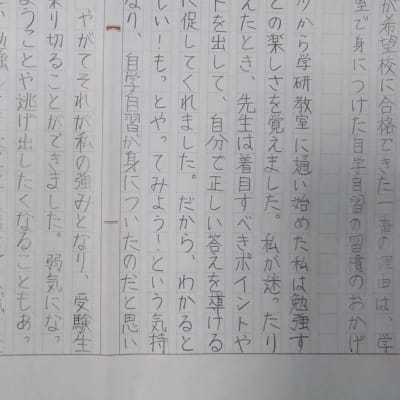 が希望校に合格できた一番の理由は、学
室で身につけた自学自習の習慣のおかげ
から学研教室に通い始めた私は勉強す
との楽しさを覚えました。私が迷ったり
えたとき、先生は着目すべきポイントや
トを出して、自分で正しい答えを導ける
に促してくれました。だから、わかると
しい！もっとやってみよう！という気持
なり、自学自習が身についたのだと思い
やがてそれが私の強みとなり、受験生
乗り切ることができました。弱気になっ
ようことや逃げ出したくなることもあっ